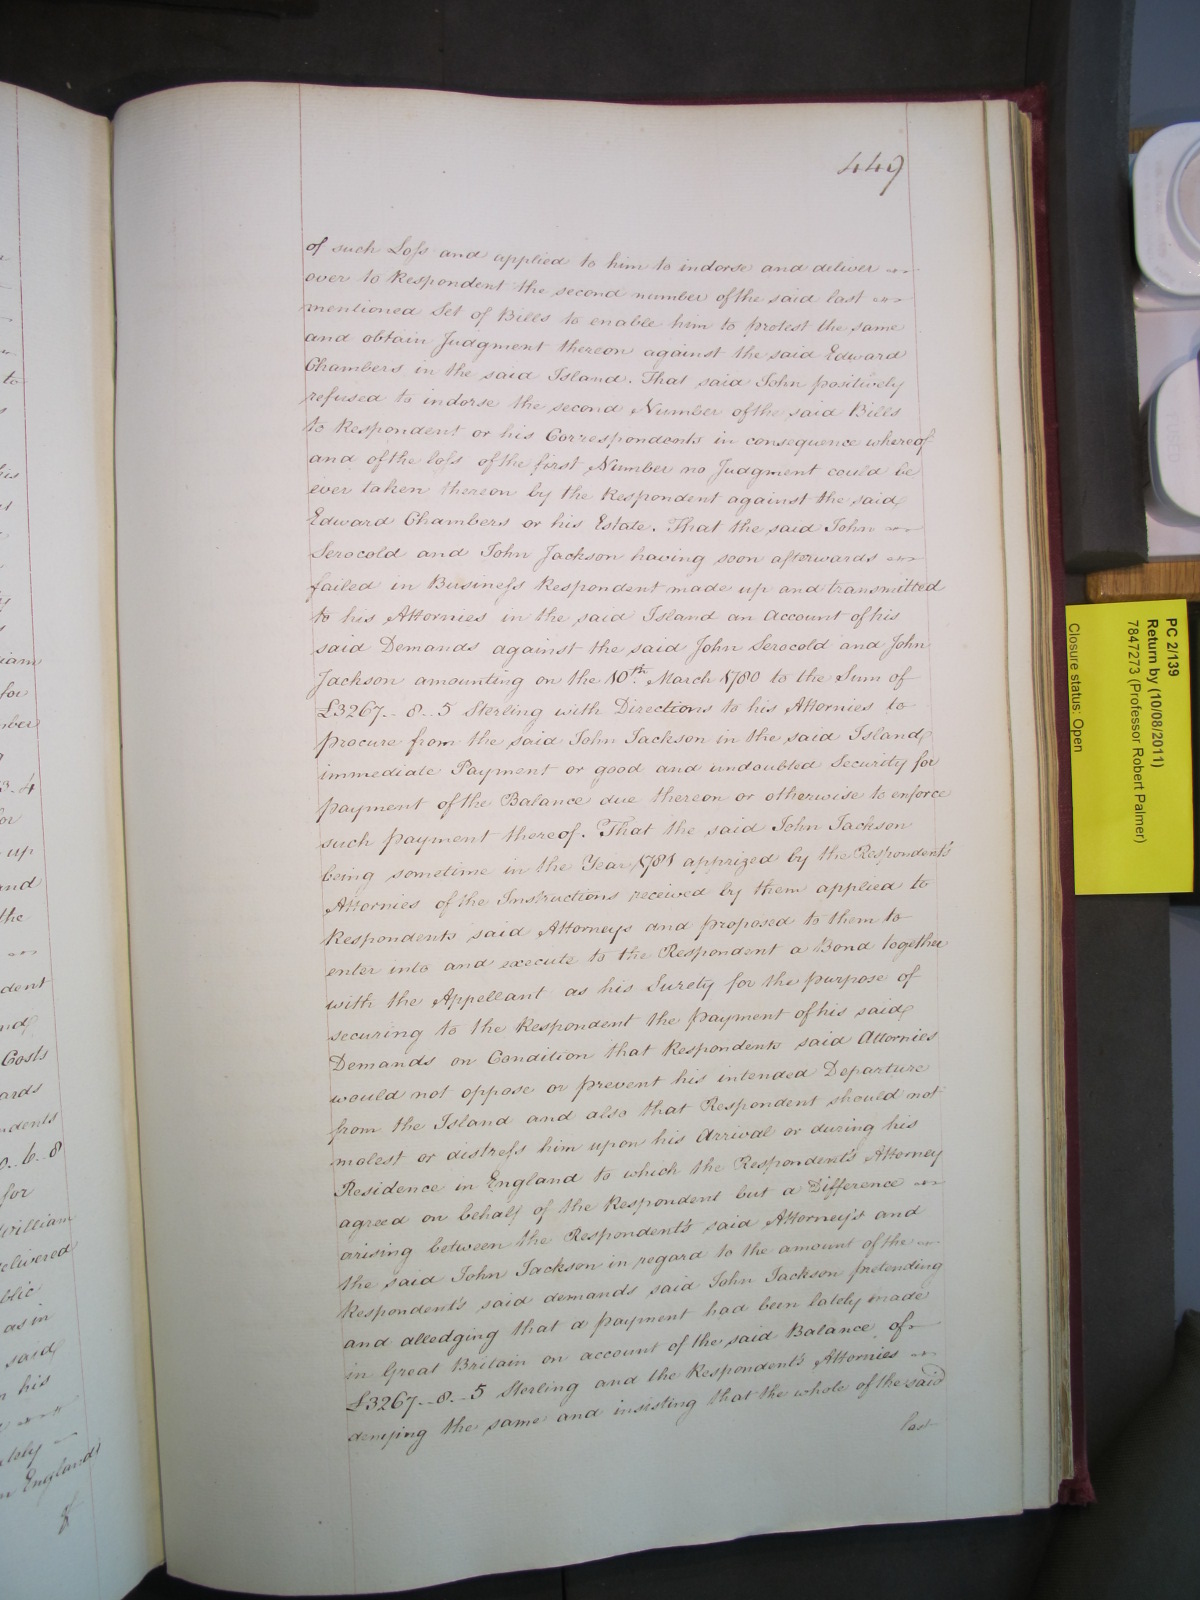 449
of such Loss and applied to him to indorse and deliver
over to Respondent the second number of the said last
mentioned Set of Bills to enable him to protest the same
and obtain Judgment thereon against the said Edward
Chambers in the said Island. That said John positively
refused to indorse the second Number of the said Bills
to Respondent or his Correspondents in consequence whereof
and of the loss of the first Number no Judgment could be
ever taken thereon by the Respondent against the said
Edward Chambers or his Estate. That the said John
Serocold and John Jackson having soon afterwards
failed in Business Respondent made up and transmitted
to his Attornies in the said Island an Account of his
said Demands against the said John Serocold and John
Jackson amounting on the 10th. March 1780 to the Sum of
£3267.. 8..5 Sterling with Directions to his Attornies to
procure from the said John Jackson in the said Island
immediate Payment or good and undoubted Security for
payment of the Balance due thereon or otherwise to enforce
such payment thereof. That the said John Jackson
being sometime in the Year 1781 apprized by the Respondent's
Attornies of the Instructions received by them applied to
Respondents said Attorneys and proposed to them to
enter into and execute to the Respondent a Bond together
with the Appellant as his Surety for the purpose of
securing to the Respondent the payment of his said
Demands on Condition that Respondents said Attornies
would not oppose or prevent his intended Departure
from the Island and also that Respondent should not
molest or distress him upon his Arrival or during his
Residence in England to which the Respondent's Attorney
agreed on behalf of the Respondent but a Difference
arising between the Respondent's said Attorney's and
the said John Jackson in regard to the amount of the
Respondent's said demands said John Jackson pretending
and alledging that a payment had been lately made
in Great Britain on account of the said Balance of
£3267..8..5 Sterling and the Respondent's Attornies
denying the same and insisting that the whole of the said
last
to
iam
for
mber
3.4
or
up
and
the
dent
and
Costs
ards
ndents
0..6..8
for
William
elivered
blic
as in
said
n his
ately
England
of
PC 2/139
Return by (10/08/2011)
7847273 (Professor Robert Palmer)
Closure status: Open